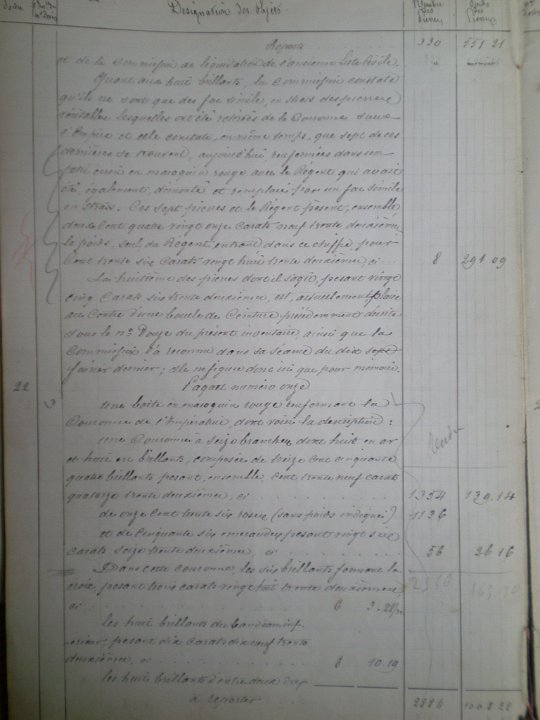 Désignation des objets
Nombre des Pierres
Poids des Pierres
Reports 330 551 21
et de la Commission de liquidation de l'ancienne Liste Civile.
Quant aux huit brillants, la Commission constate
qu'ils ne sont que des fac simile, en strass des pierres
véritables lesquelles ont été retirées de la Couronne sous
l'Empire et elle constate, en même temps, que sept de ces
dernières se trouvent, aujourd'hui renfermées dans un
petit écrin en maroquin rouge avec le Régent qui avait
été, également, démonté et remplacé par un fac simile
en strass. Ces sept pierres et le Régent pèsent, ensemble
deux Cent quatre vingt onze Carats neuf trente deuxième
le poids, seul du Régent entrant dans ce chiffre pour
Cent trente six Carats vingt huit trente deuxième, ci 8 291 09
La huitième des pierres dont il s'agit, pesant vingt
Cinq Carats six trente deuxième, est, actuellement, placée
au Centre d'une boucle de Ceinture précédemment décrite
sous le n° Douze du présent inventaire, ainsi que la
Commission l'a reconnu dans sa séance du dix sept
février dernier; elle ne figure donc ici que pour mémoire.
22 Paquet numéro onze
Une boîte en maroquin rouge renfermant la
Couronne de l'Impératrice, dont voici la description:
Une Couronne à seize branches dont huit en or
et huit en brillants, composée de treize Cent cinquante
quatre brillants pesant, ensemble Cent trente neuf carats
quatorze trente deuxième, ci 1354 139.14
de onze Cent trente six roses (sans poids indiqué) 1136
et de Cinquante six émeraudes pesant vingt six
carats seize trente deuxième, ci 56 26 16
Dans cette couronne les six brillants formant la
croix, pesant trois carats vingt huit trente deuxième
ci 6 3.28/32
les huit brillants du bandeau inf-
érieur pesant dix carats dix neuf trente
deuxième, ci 8 10.19
les huit brillants
à reporter